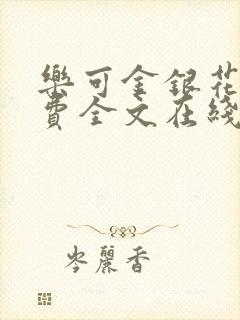 樂可金銀花
費全文在綫
岑麗香